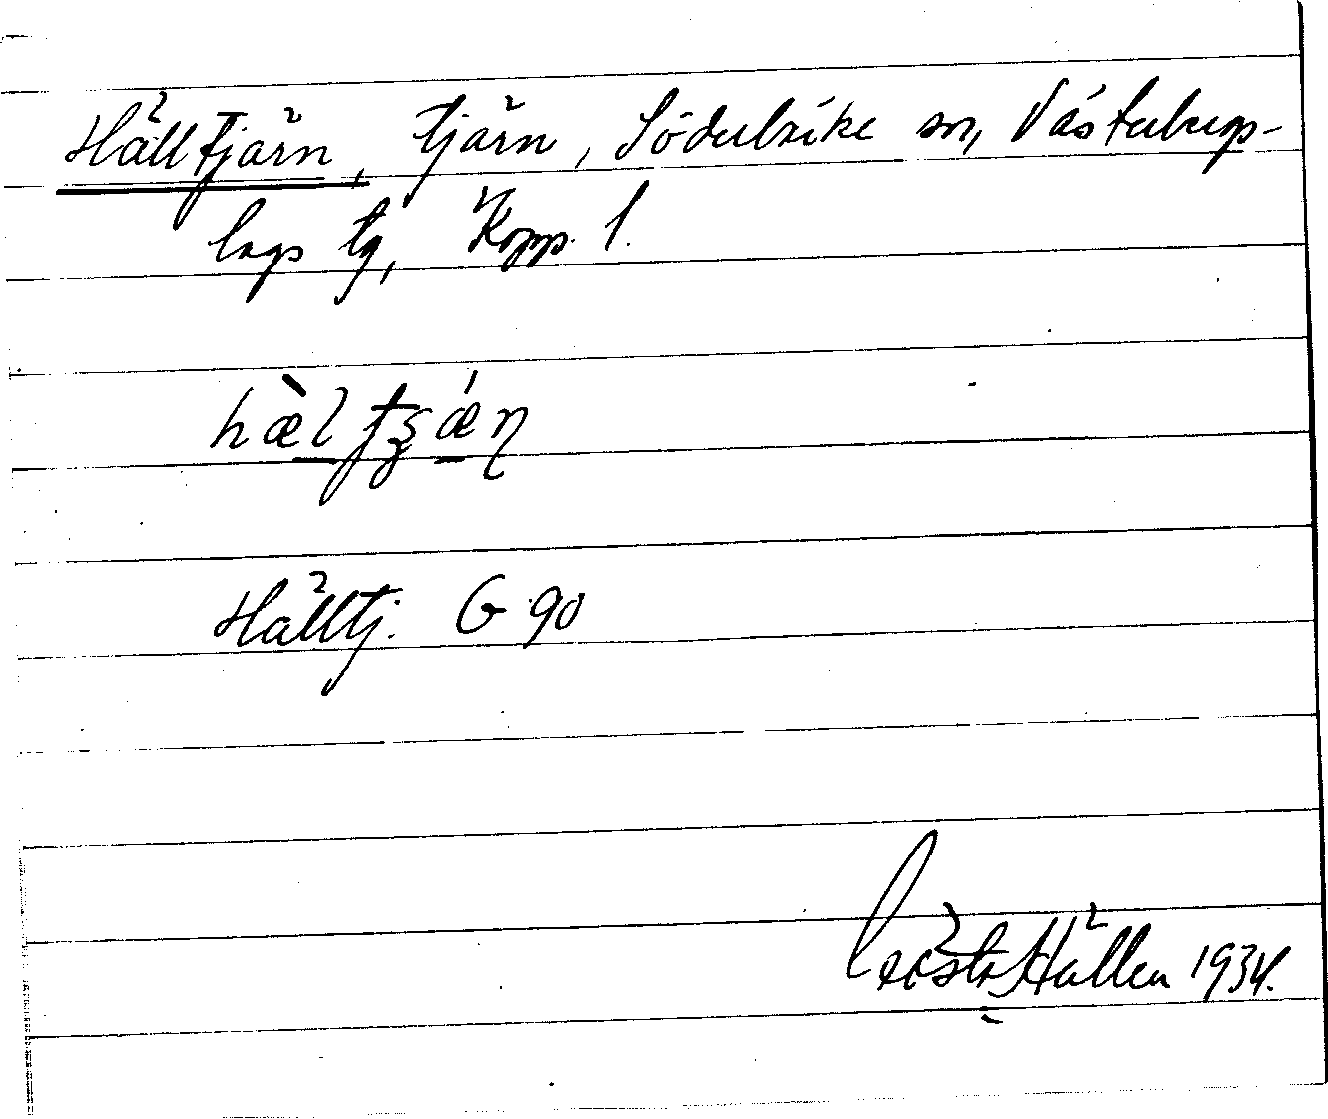 Hälltjärn, tjärn, Söderbärke sn, Västerbergs-
lags tg, Kopp. l.
hæ̀l tʂǽɳ
Hälltj. G 90
Hållen 1934.